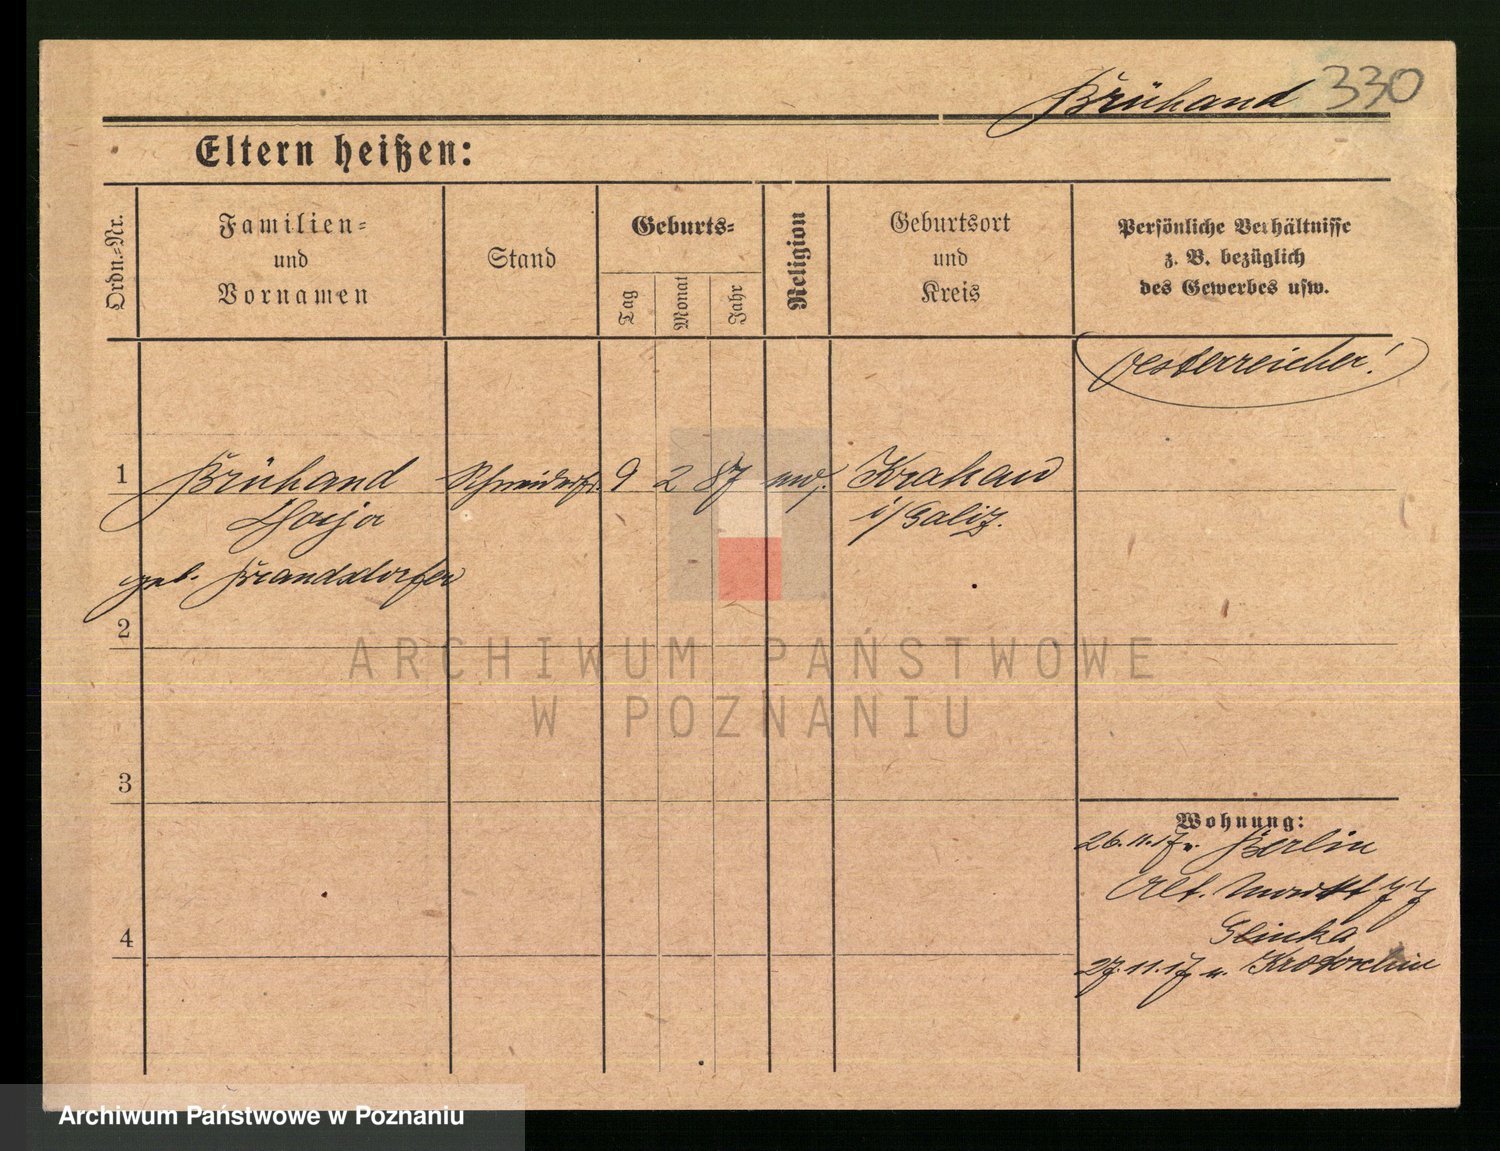 Brühand 330
Eltern heißen:
Ordn.=Nr.
Familien=
und
Vornamen
Stand
Geburts=
Tag
Monat
Jahr
Religion
Geburtsort
und
Kreis
Persönliche Verhältnisse
z. B. bezüglich
des Gewerbes usw.
Oesterreicher!
1 Brühand 9 2 87 Krakau
i/Galiz.
geb. Brandsdorfer
2
3
4
Wohnung:
26.11.17 v. Berlin
Alt. Markt 77
Glinka
27.11.17 n. Krotoschin
ARCHIWUM PAŃSTWOWE
W POZNANIU
Archiwum Państwowe w Poznaniu